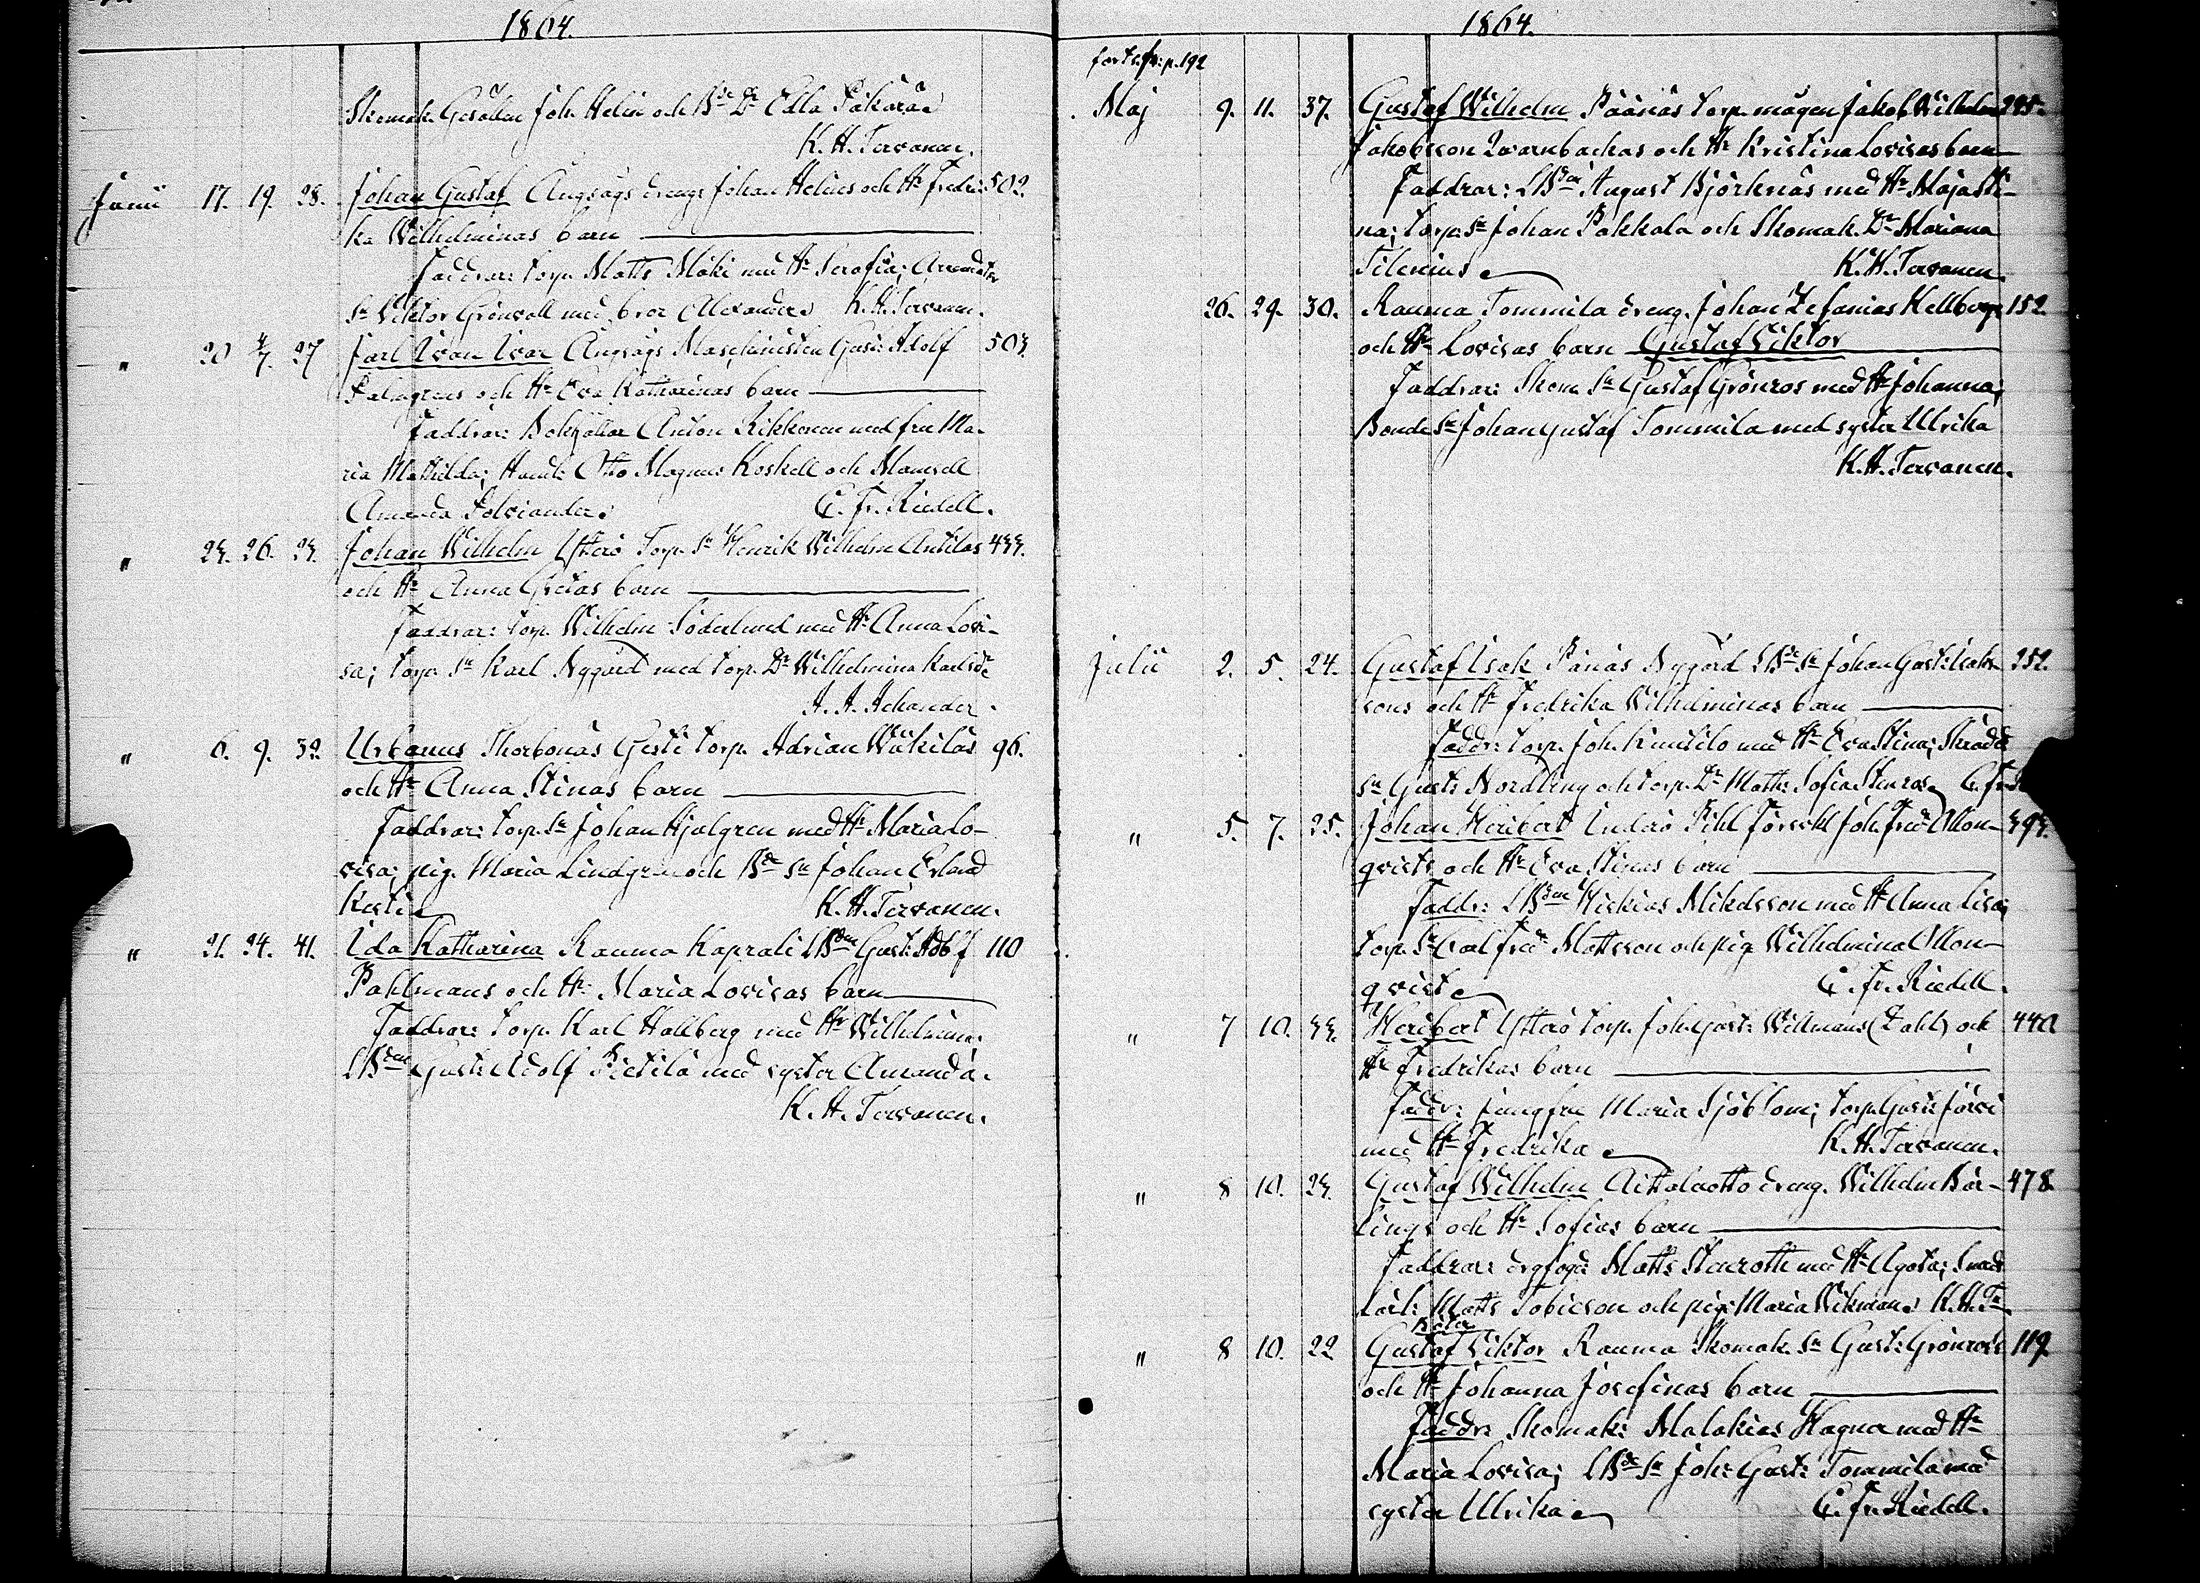 1864.
Skomak. Gesällen Joh. Helin och Bde Dr Edla Päkärä
K. H. Tervanen.
Junii 17. 19. 28. Johan Gustaf Ångsågs dreng. Johan Helins och Hr Fredri- 502.
ka Wilhelminas barn
Faddrar: torp. Matts Mäki med Hr Serafia; Arrendator
Sn Viktor Grönvall med bror Alexander K. H. Tervanen.
" 20 4/7. 27 Karl Ivan Ivar Ångsågs Maschinisten Gust. Adolf 503.
Palmgrens och Hr Eva Katharinas barn
Faddrar: Bokhållar Anton Rikkonen med fru Ma-
ria Mathilda; Handl. Otto Magnus Koskell och Mamsell
Amanda Polviander. C. Fr. Riedell.
" 23. 26. 23. Johan Wilhelm Ytterö Torp. Sn Henrik Wilhelm Antilas 433.
och Hr Anna Gretas barn
Faddrar: torp. Wilhelm Söderlund med Hr Anna Lovi-
sa; torp. Sn Karl Nygård med torp. Dr Wilhelmina Karlsdr
A. A. Achander.
" 6. 9. 32. Urbanus Thorbonäs Gesti torp. Adrian Wäkiläs 96.
och Hr Anna Stinas barn
Faddrar: torp. Sn Johan Hjelgren med Hr Maria Lo-
visa; pig. Maria Lindgren och Bde Sn Johan Erland
Kesti K. H. Tervanen.
" 21. 24. 41. Ida Katharina Rauma Kaprali LBden Gust. Adolf 110
Pahlmans och Hr Maria Lovisas barn
Faddrar: torp. Karl Hallberg med Hr Wilhelmina;
LBden Gust: Adolf Pietilä med syster Amanda.
K. H. Tervanen.
1864.
forts. fr: p. 192
Maj 9. 11. 37. Gustaf Wilhelm Päänäs torp. mågen Jakob Wilhelm 245.
Jakobsson Qvarnbackas och Hr Kristina Lovisas barn
Faddrar: LBden August Björknäs med Hr Maja Sti-
na; torp. Sn Johan Pakkala och Skomak. Dr Mariana
Silenius K. H. Tervanen.
26. 29. 30. Rauma Tommila dreng. Johan Zefanias Hellbergs 152.
och Hr Lovisas barn Gustaf Viktor
Faddrar: Skom. Sn Gustaf Grönroos med Hr Johanna;
Bonde Sn Johan Gustaf Tommila med syster Ulrika
K. H. Tervanen.
Julii 2. 5. 24. Gustaf Isak Pänäs Nygård LBde Sn Johan Gust. Isaks- 252.
sons och Hr Fredrika Wilhelminas barn
Faddr: torp. Joh. Knutilo med Hr Eva Stina; Skradd.
Sn Gust: Nordling och torp. Dr Math: Sofia Stenroos C. Fr.
" 5. 7. 25. Johan Heribert Inderö Pihl Torvikl Joh. Fred. Ollon- 393.
qvists och Hr Eva Stinas barn
Faddr: LBden Hiskias Mikelsson med Hr Anna Lisa;
torp. Sn Carl Fred. Mattsson och pig. Wilhelmina Ollon-
qvist C. Fr. Riedell.
" 7 10. 33. Heribert Ytterö torp. Joh. Gust: Wikmans (Dahl) och 440
Hr Fredrikas barn
Faddr: jungfru Maria Sjöblom; torp. Gust: Järvi
med Hr Fredrika K. H. Tervanen.
" 8 10. 23. Gustaf Wilhelm Aittaluotto dreng. Wilhelm Bär- 478
lings och Hr Sofias barn
Faddrar: drgfogd: Matts Stenroth med Hr Agata; Smed
lärl: Matts Tobieson och pig: Maria Wikman K. H. Tn
" 8 10. 22 Gustaf Viktor Rauma Skomak. Sn Gust: Grönroos 119
och Hr Johanna Josefinas barn
Faddr: Skomak: Malakias Hagner med Hr
Maria Lovisa; LBde Sn Joh: Gust: Tommila med
syster Ulrika C. Fr. Riedell.